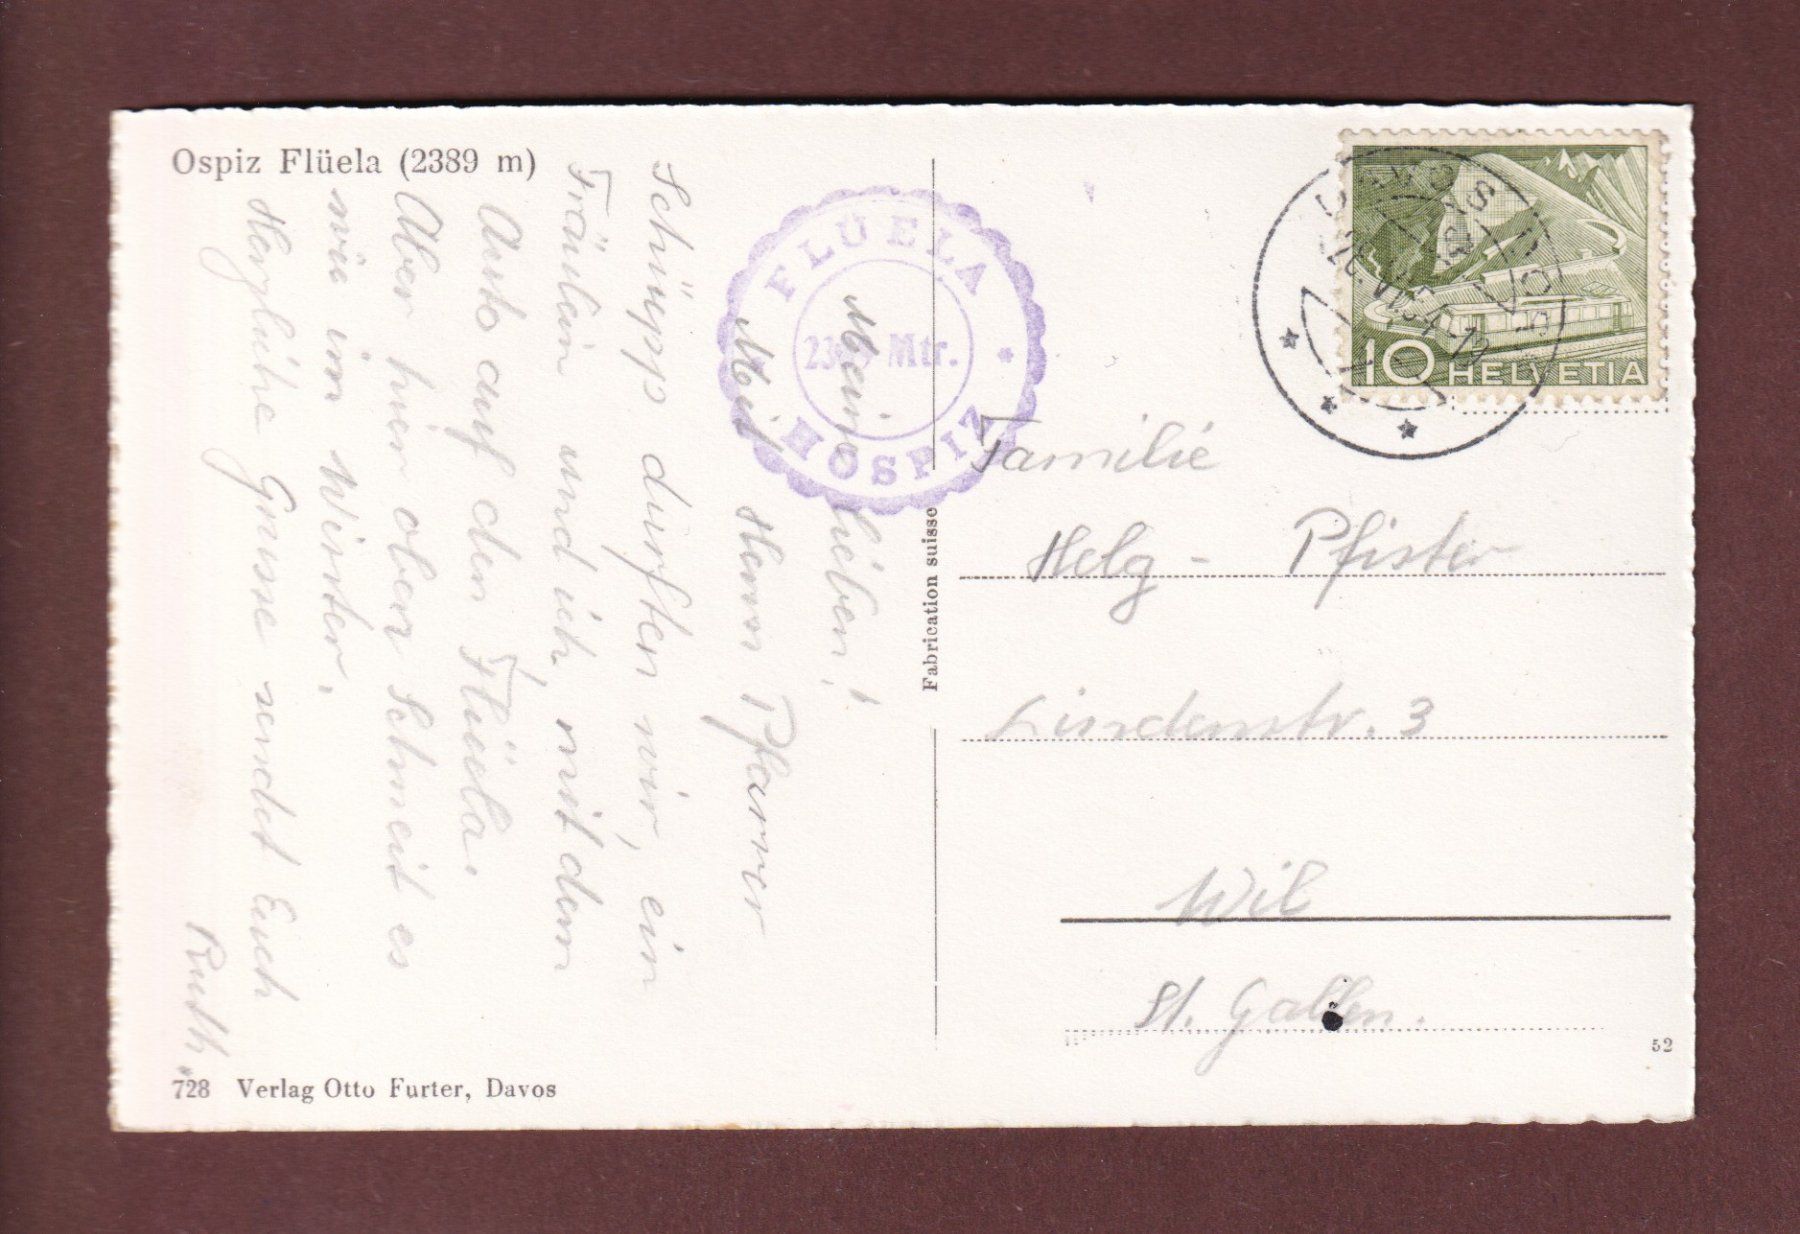 Ospiz Flüela (2389 m)
Meine Lieben!
Mit Herrn Pfarrer
Schüepp durften wir, ein
Fräulein und ich, mit dem
Auto auf den Flüela.
Aber hier oben Schneit es
wie im Winter.
Herzliche Grüsse sendet Euch
Ruth.
728 Verlag Otto Furter, Davos
FLÜELA
Mtr.
HOSPIZ
Fabrication suisse
DAVOS DORF
10 HELVETIA
Familie
Helg - Pfister
Lindenstr. 3
Wil
St. Gallen.
52